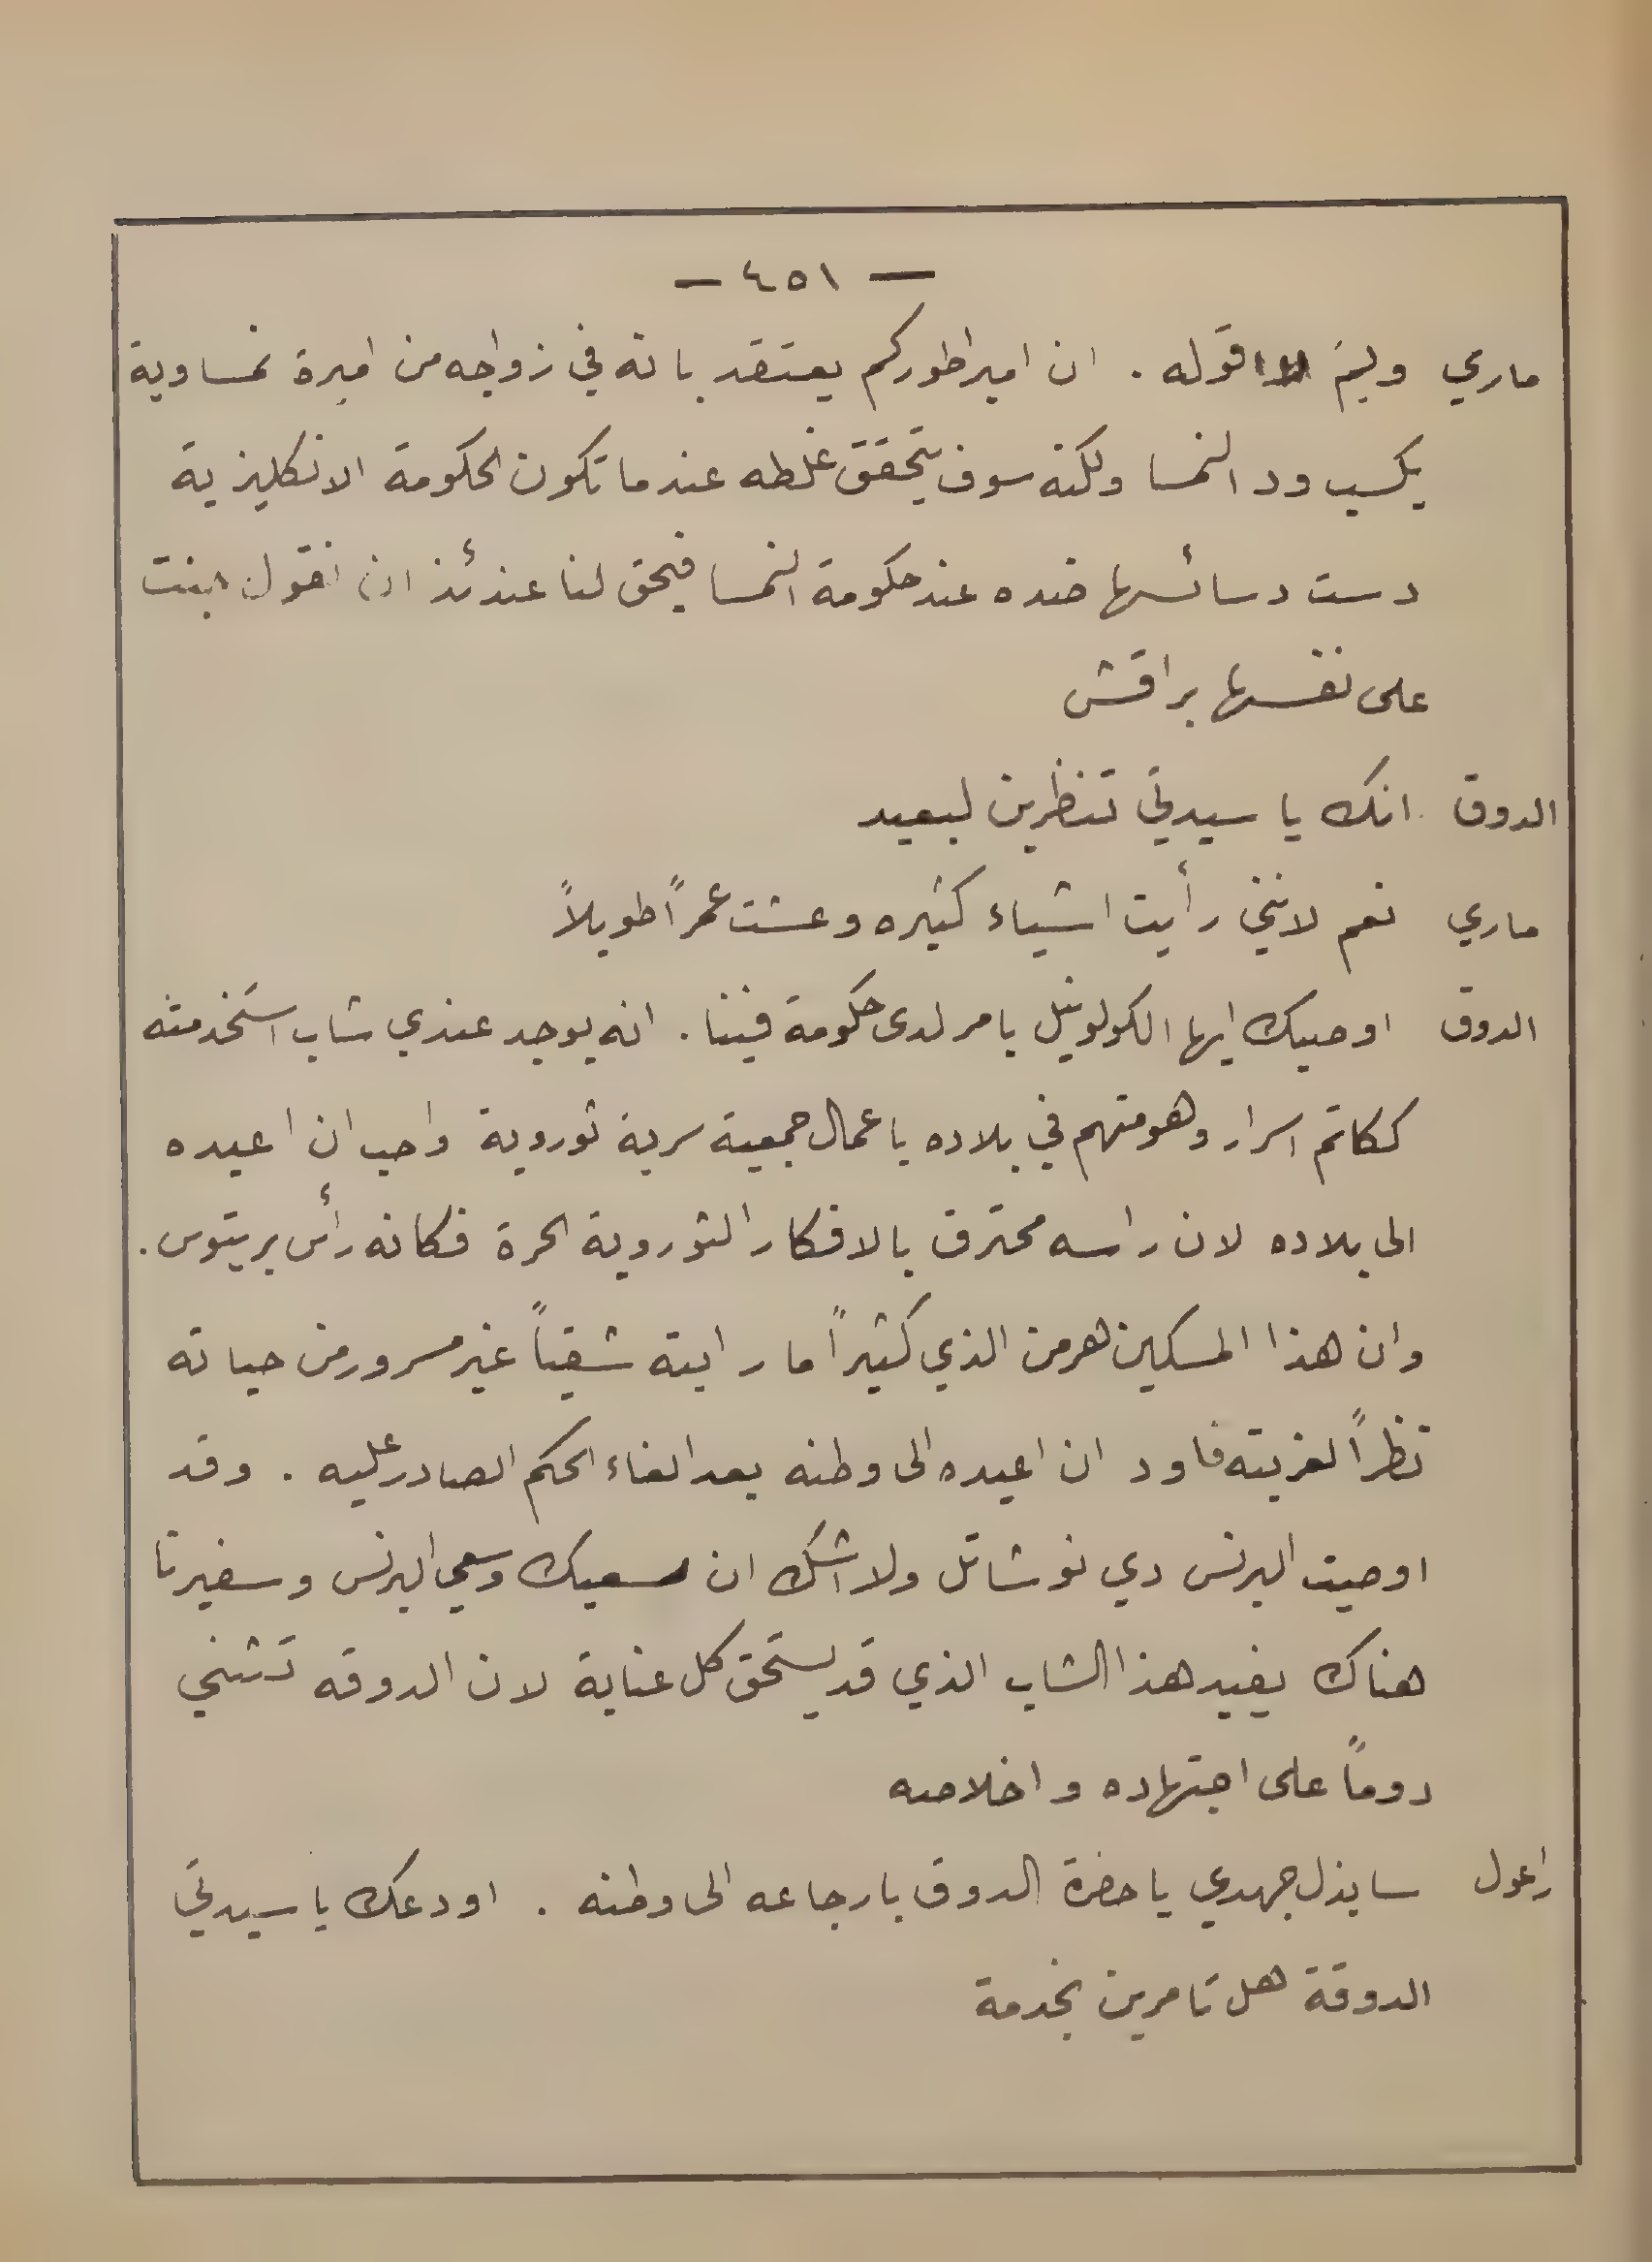 — ٤٥١ —
ماري ولِمَ لا اقوله . ان امبراطوركم يعتقد بانه في زواجه من اميرة نمساوية
يكسب ود النمسا ولكنه سوف يتحقق غلطه عندما تكون الحكومة الانكليزية
دست دسائسها ضده عند حكومة النمسا فيحق لنا عندئذ ان نقول جنت
على نفسها براقش
الدوق انك يا سيدتي تنظرين لبعيد
ماري نعم لانني رأيت اشياء كثيره وعشت عمراً طويلاً
الدوق اوصيك ايها الكولونيل بامر لدى حكومة فيننا . انه يوجد عندي شاب استخدمته
ككاتم اسرار وهو متهم في بلاده باعمال جمعية سرية ثوروية واحب ان اعيده
الى بلاده لان راسه محترق بالافكار الثوروية الحرة فكانه رأس بريتوس .
وان هذا المسكين هرمن الذي كثيراً ما رايته شقياً غير مسرور من حياته
نظراً لغربته فاود ان اعيده الى وطنه بعد الغاء الحكم الصادر عليه . وقد
اوصيت البرنس دي نوشاتل ولا اشك ان سعيك وسعي البرنس وسفيرنا
هناك يفيد هذا الشاب الذي قد يستحق كل عناية لان الدوقه تثني
دوماً على اجتهاده واخلاصه
راعول سابذل جهدي يا حضرة الدوق بارجاعه الى وطنه . اودعك يا سيدتي
الدوقة هل تامرين بخدمة